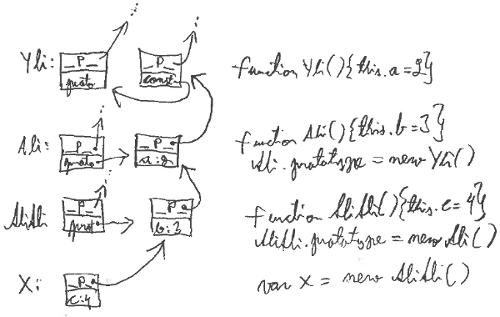 Yli:
_P_
proto
_P_
const
function Yli(){this.a=2}
Ali:
_P_
proto
_P_
a:2
function Ali(){this.b=3}
Ali.prototype = new Yli()
AliAli
_P_
proto
_P_
b:3
function AliAli(){this.c=4}
AliAli.prototype = new Ali()
X:
_P_
c:4
var X = new AliAli()